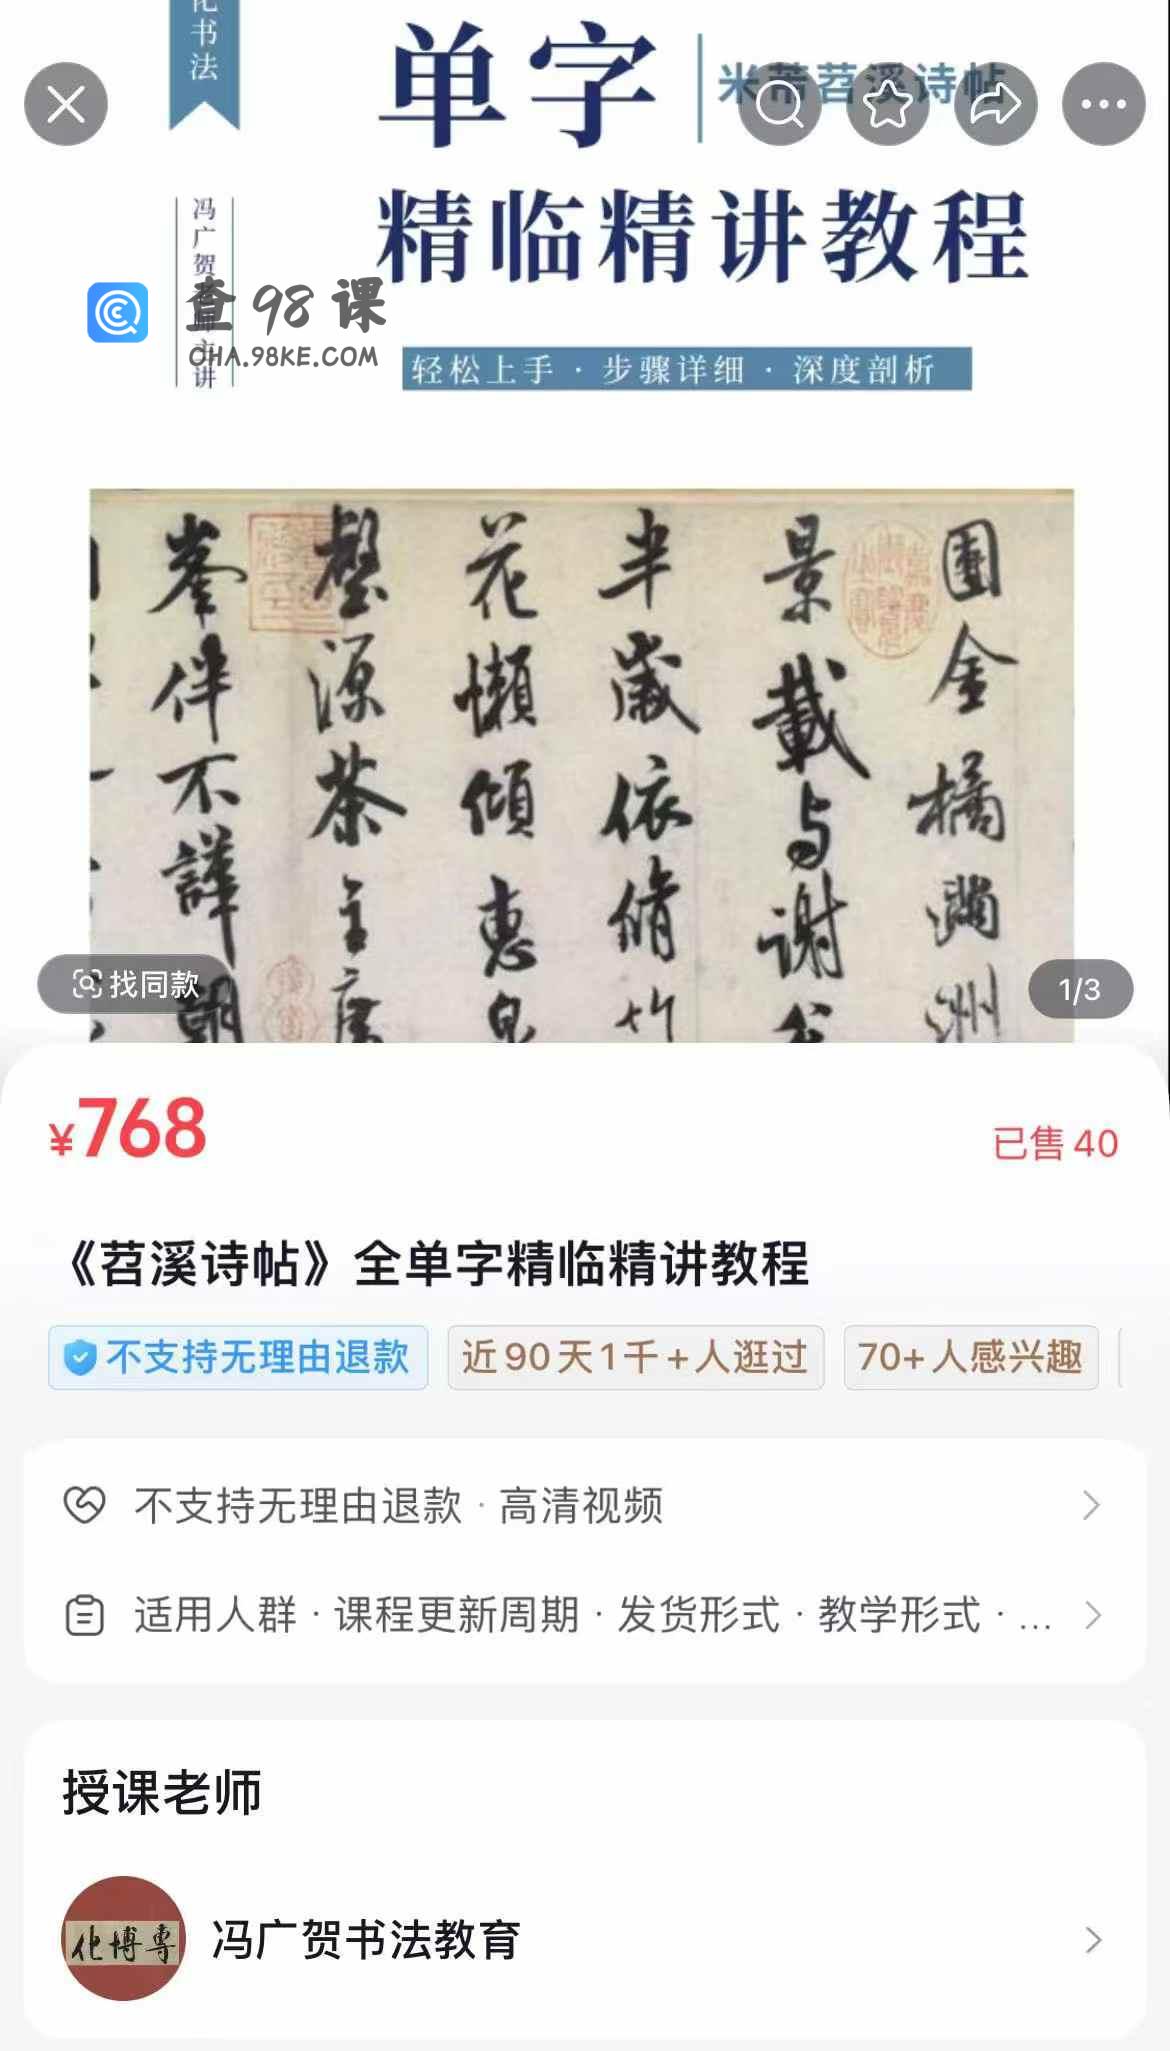 化书法
单字
米芾苕溪诗帖
精临精讲教程
冯广贺老师主讲
查98课
CHA.98KE.COM
轻松上手 · 步骤详细 · 深度剖析
團金橘滿洲
景載与謝公
半歲依脩竹
花懶傾惠泉
壑源茶主席
峯伴不譁朝
找同款
1/3
¥768
已售 40
《苕溪诗帖》全单字精临精讲教程
不支持无理由退款
近90天1千+人逛过
70+人感兴趣
不支持无理由退款 · 高清视频
适用人群 · 课程更新周期 · 发货形式 · 教学形式 · ...
授课老师
化博尊
冯广贺书法教育